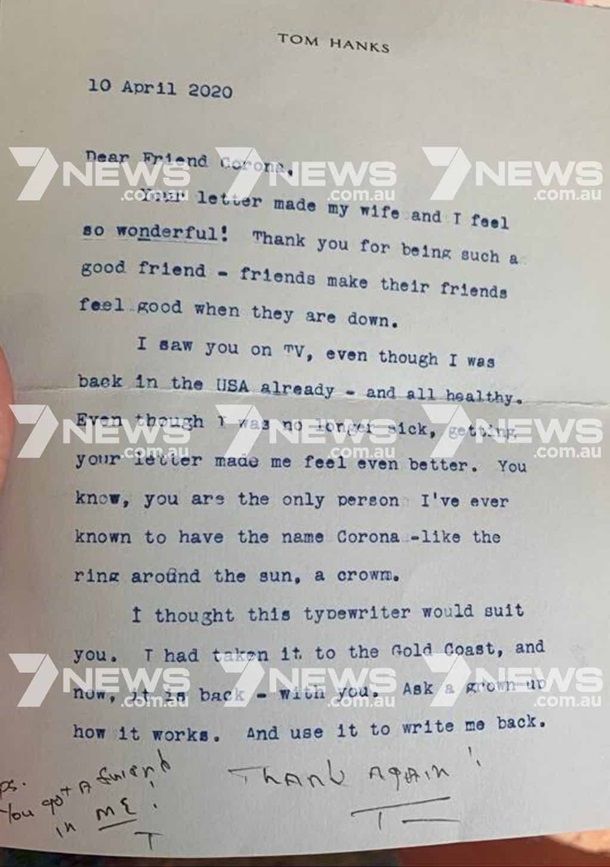 TOM HANKS
10 April 2020
Dear Friend Corona,
Your letter made my wife and I feel
so wonderful! Thank you for being such a
good friend - friends make their friends
feel good when they are down.
I saw you on TV, even though I was
back in the USA already - and all healthy.
Even though I was no longer sick, getting
your letter made me feel even better. You
know, you are the only person I've ever
known to have the name Corona -like the
ring around the sun, a crowm.
I thought this typewriter would suit
you. I had taken it to the Gold Coast, and
now, it is back - with you. Ask a grown-up
how it works. And use it to write me back.
THANK AGAIN!
T
PS.
You got A friend
in ME!
T
7NEWS .com.au 7NEWS .com.au 7NEWS .com.au
7NEWS .com.au 7NEWS .com.au 7NEWS .com.au
7NEWS .com.au 7NEWS .com.au 7NEWS .com.au
7NEWS .com.au 7NEWS .com.au 7NEWS .com.au